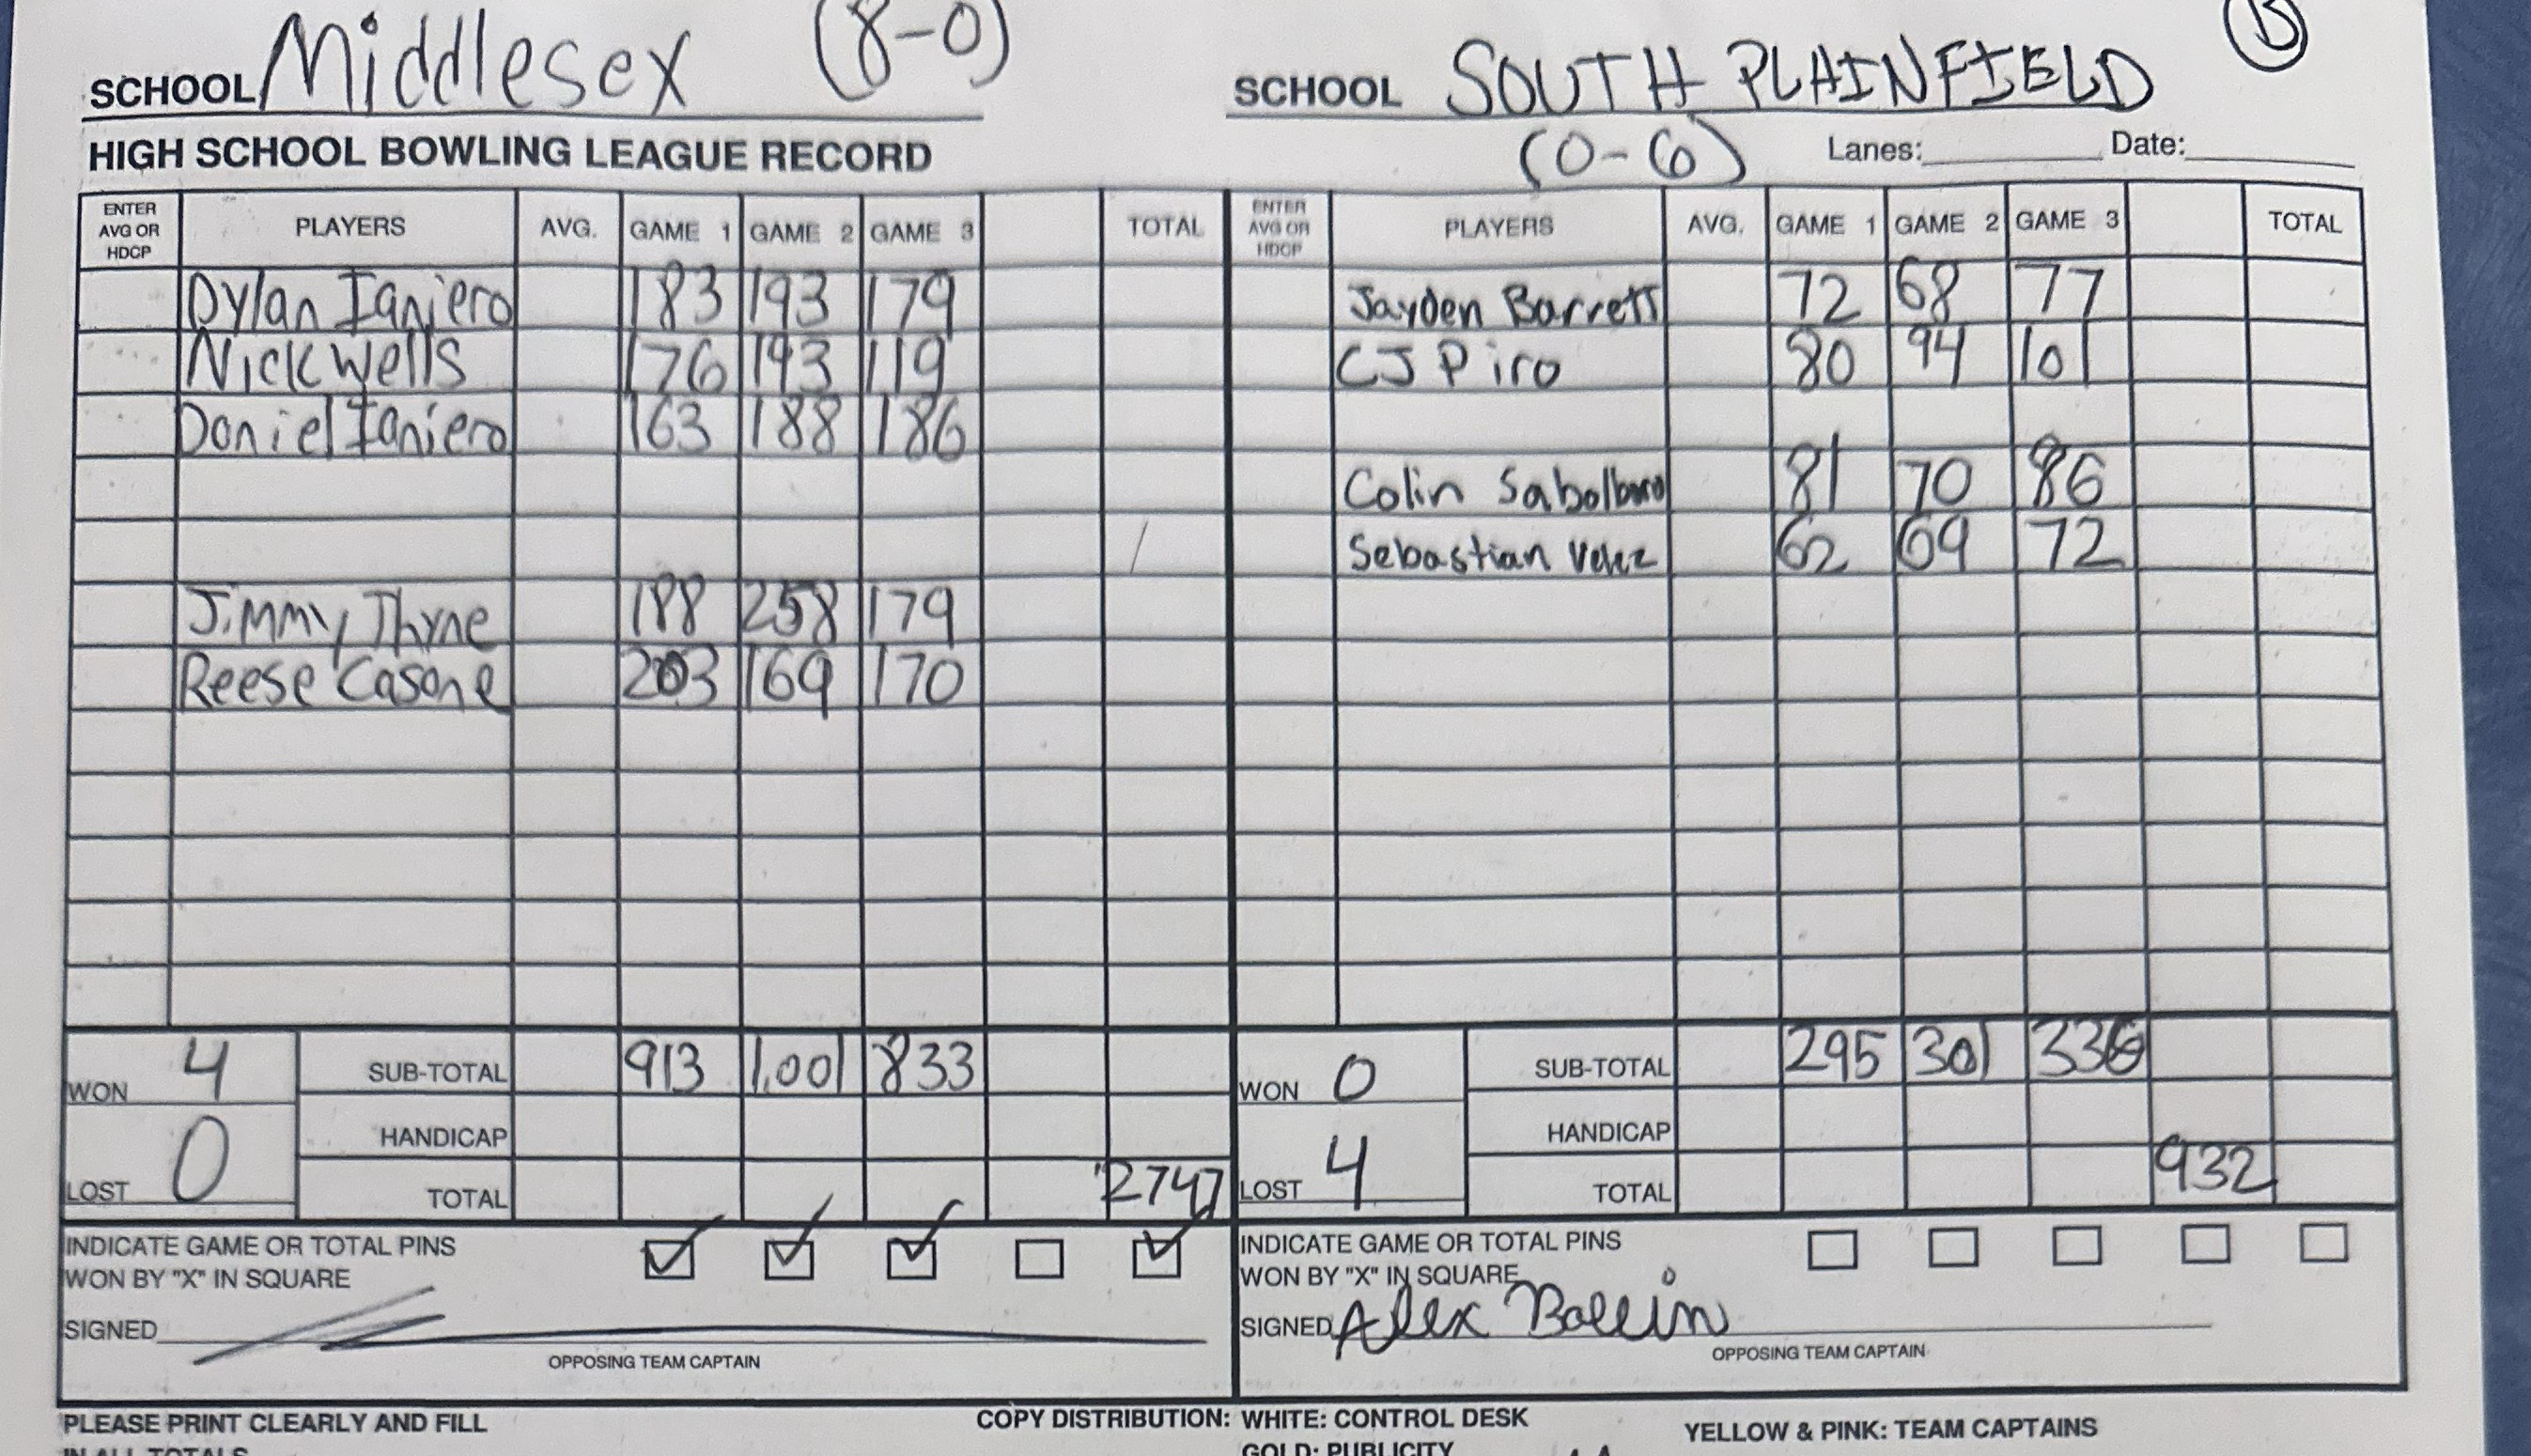 SCHOOL Middlesex (8-0)
SCHOOL SOUTH PLAINFIELD B
(0-6)
HIGH SCHOOL BOWLING LEAGUE RECORD
Lanes: Date:
ENTER AVG OR HDCP PLAYERS AVG. GAME 1 GAME 2 GAME 3 TOTAL ENTER AVG OR HDCP PLAYERS AVG. GAME 1 GAME 2 GAME 3 TOTAL
Dylan Ianiero 183 193 179 Jayden Barrett 72 68 77
Nick Wells 176 193 119 CJ Piro 80 94 101
Daniel Ianiero 163 188 186
Colin 81 70 86
Sebastian Velez 62 69 72
Jimmy Thyne 188 258 179
Reese Casone 203 169 170
WON 4 SUB-TOTAL 913 1,001 833 WON 0 SUB-TOTAL 295 301 336
HANDICAP HANDICAP
LOST 0 TOTAL 2747 LOST 4 TOTAL 932
INDICATE GAME OR TOTAL PINS
WON BY "X" IN SQUARE
INDICATE GAME OR TOTAL PINS
WON BY "X" IN SQUARE
SIGNED
OPPOSING TEAM CAPTAIN
SIGNED Alex
OPPOSING TEAM CAPTAIN
PLEASE PRINT CLEARLY AND FILL
IN ALL TOTALS
COPY DISTRIBUTION: WHITE: CONTROL DESK
GOLD: PUBLICITY
YELLOW & PINK: TEAM CAPTAINS